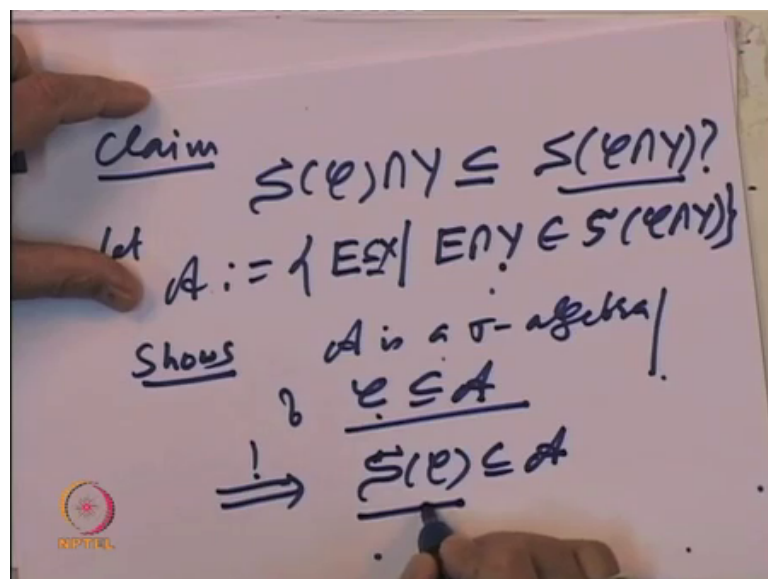 Claim
S(𝒞)∩Y ⊆ S(𝒞∩Y)?
let A := { E⊆X | E∩Y ∈ S(𝒞∩Y)}
Shows A is a σ-algebra
& 𝒞 ⊆ A
! ⟹ S(𝒞) ⊆ A
NPTEL